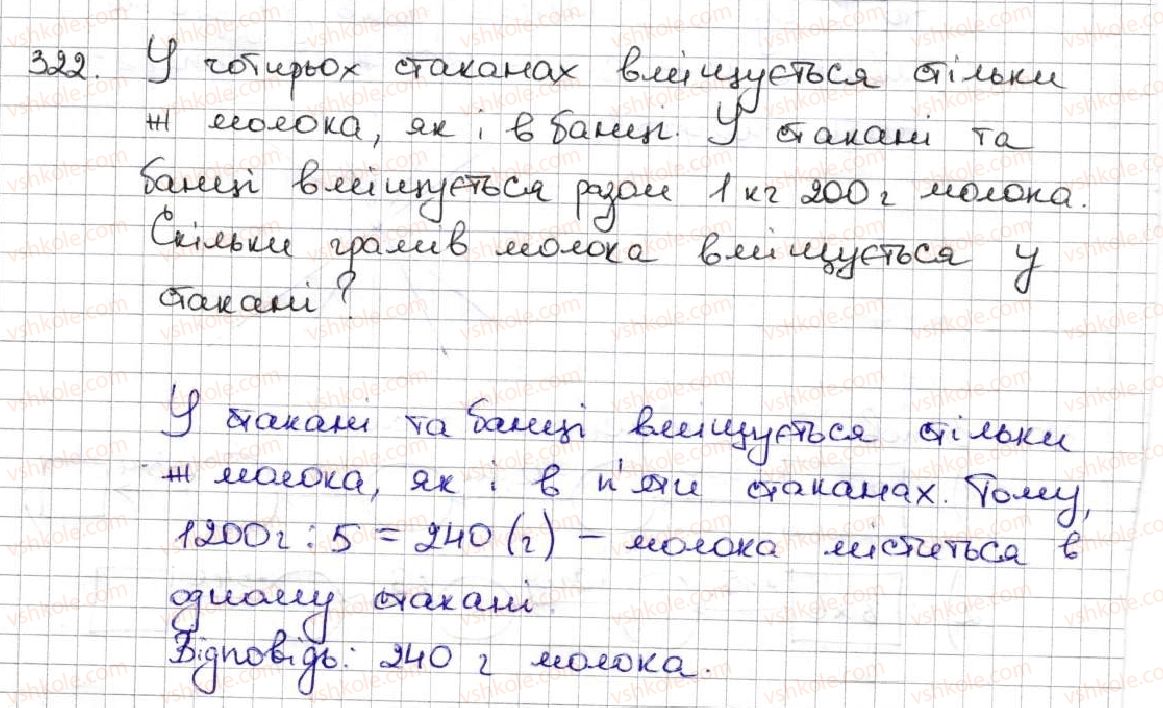 322. У чотирьох стаканах вміщується стільки
ж молока, як і в банці. У стакані та
банці вміщується разом 1 кг 200 г молока.
Скільки грамів молока вміщується у
стакані?
У стакані та банці вміщується стільки
ж молока, як і в п'яти стаканах. Тому,
1200г : 5 = 240 (г) – молока міститься в
одному стакані.
Відповідь: 240 г молока.